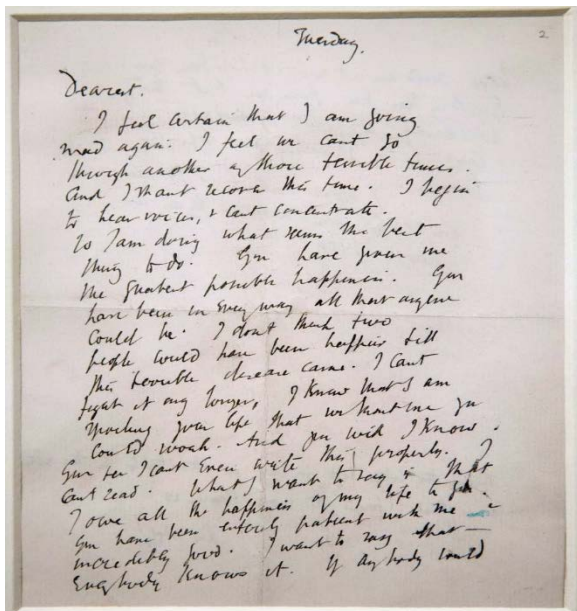 Tuesday.
2
Dearest.
I feel certain that I am going
mad again: I feel we cant go
through another of those terrible times.
And I shant recover this time. I begin
to hear voices, & cant concentrate.
So I am doing what seems the best
thing to do. You have given me
the greatest possible happiness. You
have been in every way all that anyone
could be. I dont think two
people could have been happier till
this terrible disease came. I cant
fight it any longer, I know that I am
spoiling your life, that without me you
could work. And you will I know.
You see I cant even write this properly. I
cant read. What I want to say is that
I owe all the happiness of my life to you.
You have been entirely patient with me &
incredibly good. I want to say that –
everybody knows it. If anybody could